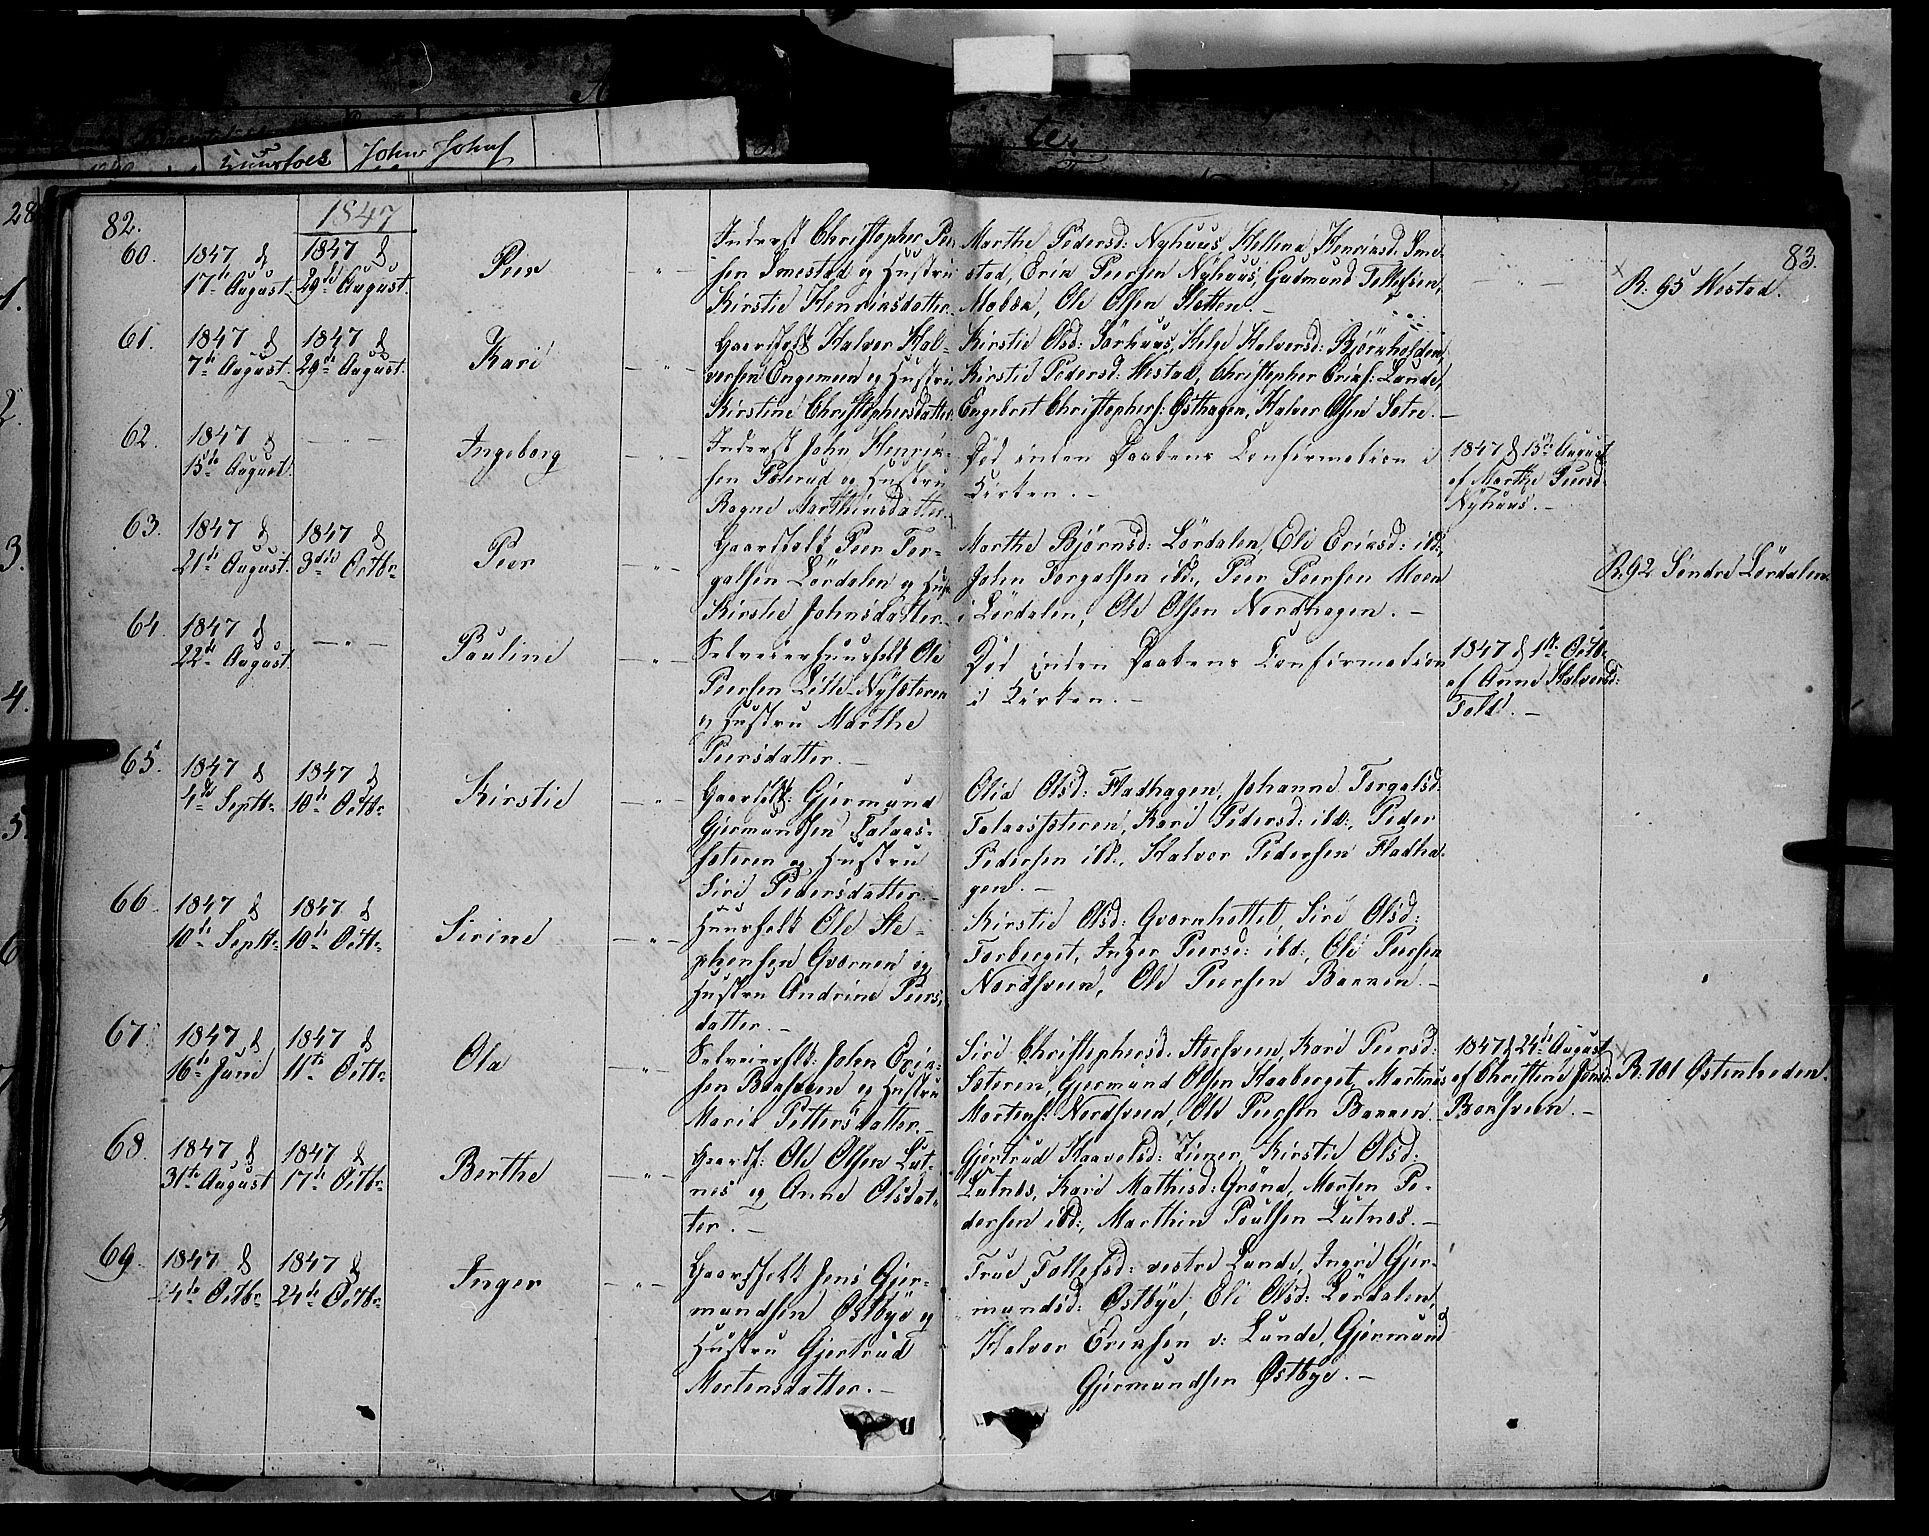 82.
1847
83.
60.
1847 d
17de August.
1847 d
29de August.
Peer
Inderst Christopher Peer
sen Smestad og Hustru
Kirstie Henriksdatter.
Marthe Pedersd: Nyhuus, Hellena Henriksd: Sme-
stad, Erik Peersen Nyhuus, Gudmund Tollefsen
Ole Olsen Sletten. -
R: 95 Nestad.
61.
1847 d
7de August.
1847 d
29de August.
Kari
Gaardfolk Halvor Hal-
vorsen Engemoen og Hustru
Kirstine Christophersdatter
Kirstie Olsd: Sörhuus, Helge Halvorsd: Björnholden,
Kirstie Pedersd: Nestad, Christopher Eriks: Lunde,
Engebret Christophers: Östhagen, Halvor Olsen Sætre. -
62.
1847 d
15de August.
Ingeborg
Inderst John Henrik-
sen og Hustru
Ragne Marthinsdatter.
Död inden Daabens Confirmation i
Kirken. -
1847 d 15de August
af Marthe Peersd:
Nyhuus. -
63.
1847 d
21de August.
1847 d
3die Octbr
Peer
Gaardfolk Peer Tor-
galsen Lördalen og Hustru
Kirstie Johnsdatter.
Marthe Björnsd: Lördalen, Eli Eriksd: ibd:,
John Torgalsen ibd:, Peer Peersen Moen
i Lördalen, Ole Olsen Nordhagen. -
R. 92 Söndre Lördalen.
64.
1847 d
22de August
Pauline
Selveierhuusfolk Ole
Peersen Lille-Nysæteren
og Hustru Marthe
Peersdatter. -
Död inden Daabens Confirmation
i Kirken. -
1847 d 1ste Octbr
af Anne Halvorsd:
Told. -
65.
1847 d
4de Septbr
1847 d
10de Octbr
Kirstie
Gaardfolk: Gjermund
Gjermundsen Talaas-
sæteren og Hustru
Siri Pedersdatter. -
Olia Olsd: Fladhagen, Johanne Torgalsd:
Talaassæteren, Kari Pedersd: ibd:, Peder
Pedersen ibd:, Halvor Pedersen Fladha-
gen. -
66.
1847 d
10de Septbr
1847 d
10de Octbr
Sirine
Huusfolk Ole Ste-
phensen Qværnen og
Hustru Andrine Peers-
datter. -
Kirstie Olsd: Qværnhottet, Siri Olsd:
Torberget, Inger Peersd: ibd:, Ole Peersen
Nordsveen, Ole Peersen Bakken. -
67.
1847 d
16de Juni
1847 d
11te Octbr
Ola
Selveierflk: John Erik-
sen Bonsveen og Hustru
Marie Pettersdatter. -
Siri Christophersd: Storsveen, Kari Peersd:
Sæteren, Gjermund Olsen Haaberget, Martinus
Mortens: Nordsveen, Ole Peersen Bakken.
1847 d 24de August
af Christine Jonsd:
Bonsveen. -
R: 101 Östenheden.
68.
1847 d
31te August
1847 d
17de Octbr
Berthe
Gaardf: Ole Olsen Lut-
nes og Anne Olsdat-
ter. -
Gjertrud Haavelsd: Linner, Kirstie Olsd:
Lutnes, Kari Mathisd: Grönd, Morten Pe-
dersen ibd:, Marthin Poulsen Lutnes. -
69.
1847 d
4de Octbr
1847 d
24de Octbr
Inger
Gaardfolk Jens Gjer-
mundsen Östbye og
Hustru Gjertrud
Mortensdatter. -
True Tollefsd: vestre Lunde, Ingri Gjer-
mundsd: Östbye, Eli Olsd: Lördalen,
Halvor Eriksen v: Lunde, Gjermund
Gjermundsen Östbye. -